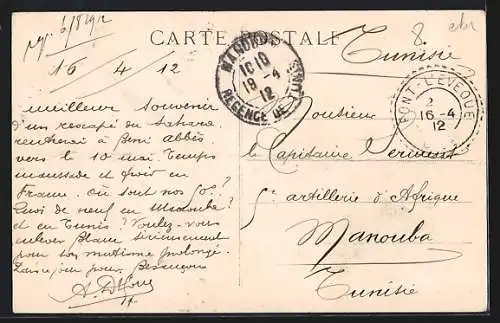 rep. 6/8 1912
CARTE POSTALE
8.
Tunisie
MANOUBA
1610
19-4
12
REGENCE DE TUNIS
PONT-L'EVEQUE
2
16-4
12
16 4 12
Meilleur souvenir
d'un rescapé du Sahara
rentrerai à Beni Abbès
vers le 10 mai. Temps
maussade et froid en
France. Où sont nos 50°?
Quoi de neuf en Manouba
et en Tunis? Voulez-vous
enlever Blanc sérieusement
pour son mutisme prolongé.
pour Besançon
Monsieur
le Capitaine
5e artillerie d'Afrique
Manouba
Tunisie